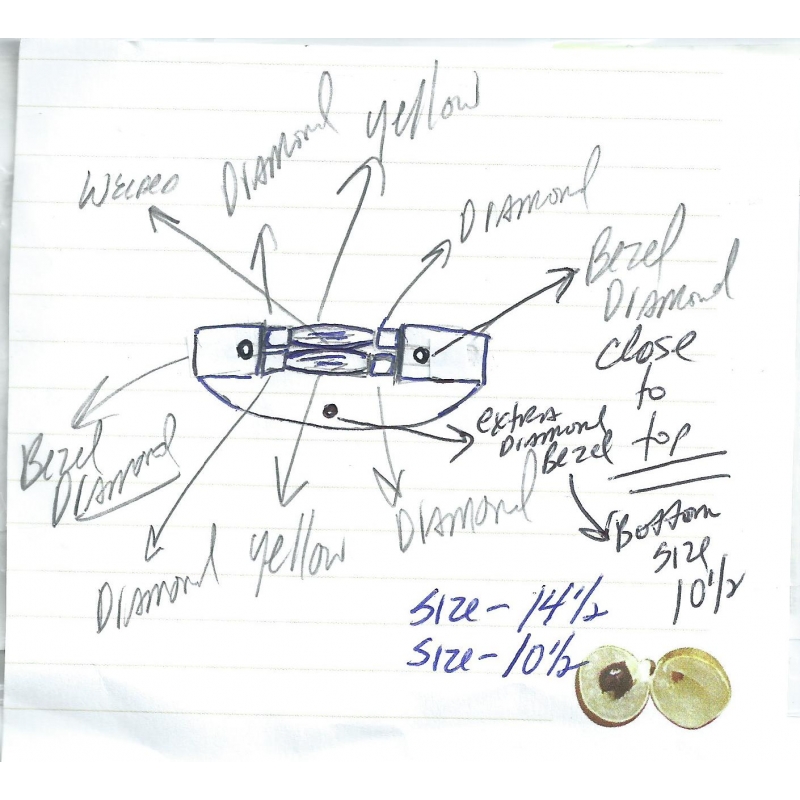 Welded
Diamond
Yellow
Diamond
Bezel
Diamond
close
to
top
extra
Diamond
Bezel
Bottom
Size
10 1/2
Bezel
Diamond
Diamond
Yellow
Diamond
Size - 14 1/2
Size - 10 1/2